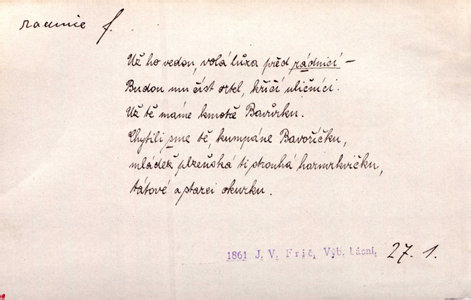 radnice f.
Už ho vedou, volá lůza před rádnicí –
Budou mu číst ortel, křičí uličníci.
Už tě máme kmotře Bavůrku.
Chytili jsme tě kumpáne Bavoříčku,
mládež plzeňská ti strouhá harmrkvičku,
tátové a starci okurku.
1861 J. V. Frič, Výb. básní, 27. 1.